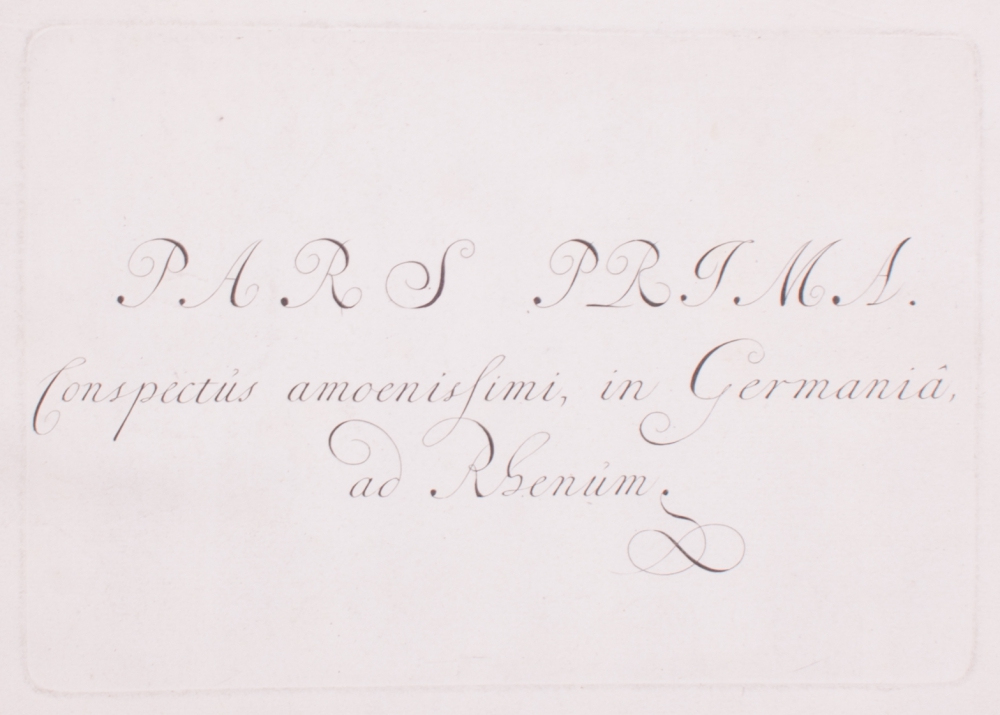 PARS PRIMA.
Conspectús amoenisſimi, in Germaniâ,
ad Rhenúm.